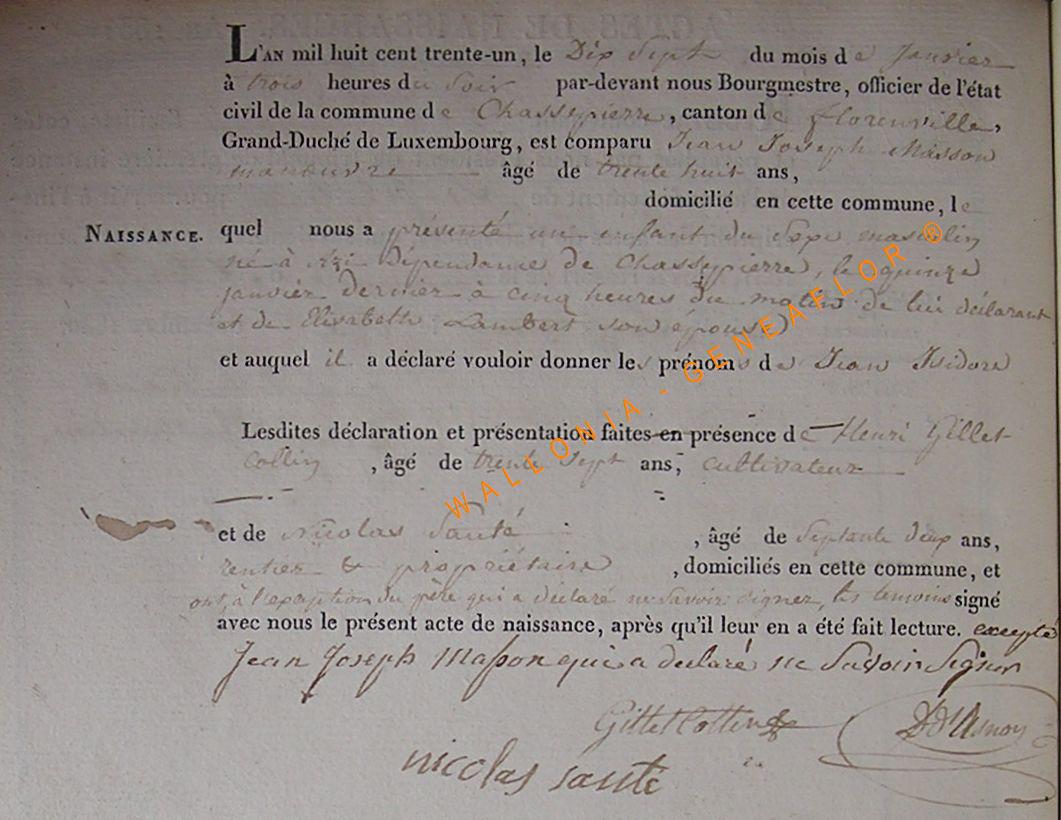 L'AN mil huit cent trente-un, le Dix Sept du mois de Janvier
à trois heures du Soir par-devant nous Bourgmestre, officier de l'état
civil de la commune de Chassypierre, canton de florenville,
Grand-Duché de Luxembourg, est comparu Jean Joseph Masson
manœuvre âgé de trente huit ans,
domicilié en cette commune, le
NAISSANCE. quel nous a présenté un enfant du Sexe masculin
né à Dépendance de Chassypierre, le quinze
janvier dernier à cinq heures du matin de lui déclarant
et de Elisabeth Lambert son épouse
et auquel il a déclaré vouloir donner les prénoms de Jean Isidore
Lesdites déclaration et présentation faites en présence de Henri Gillet
Collin, âgé de trente Sept ans, cultivateur
et de Nicolas Santé, âgé de Septante deux ans,
rentier & propriétaire, domiciliés en cette commune, et
ont, à l'exception du père qui a déclaré ne Savoir Signer, les témoins signé
avec nous le présent acte de naissance, après qu'il leur en a été fait lecture. excepté
Jean Joseph Masson qui a declaré ne Savoir Signer
Gillet Collin
nicolas santé
WALLONIA - GENEAFLOR ®